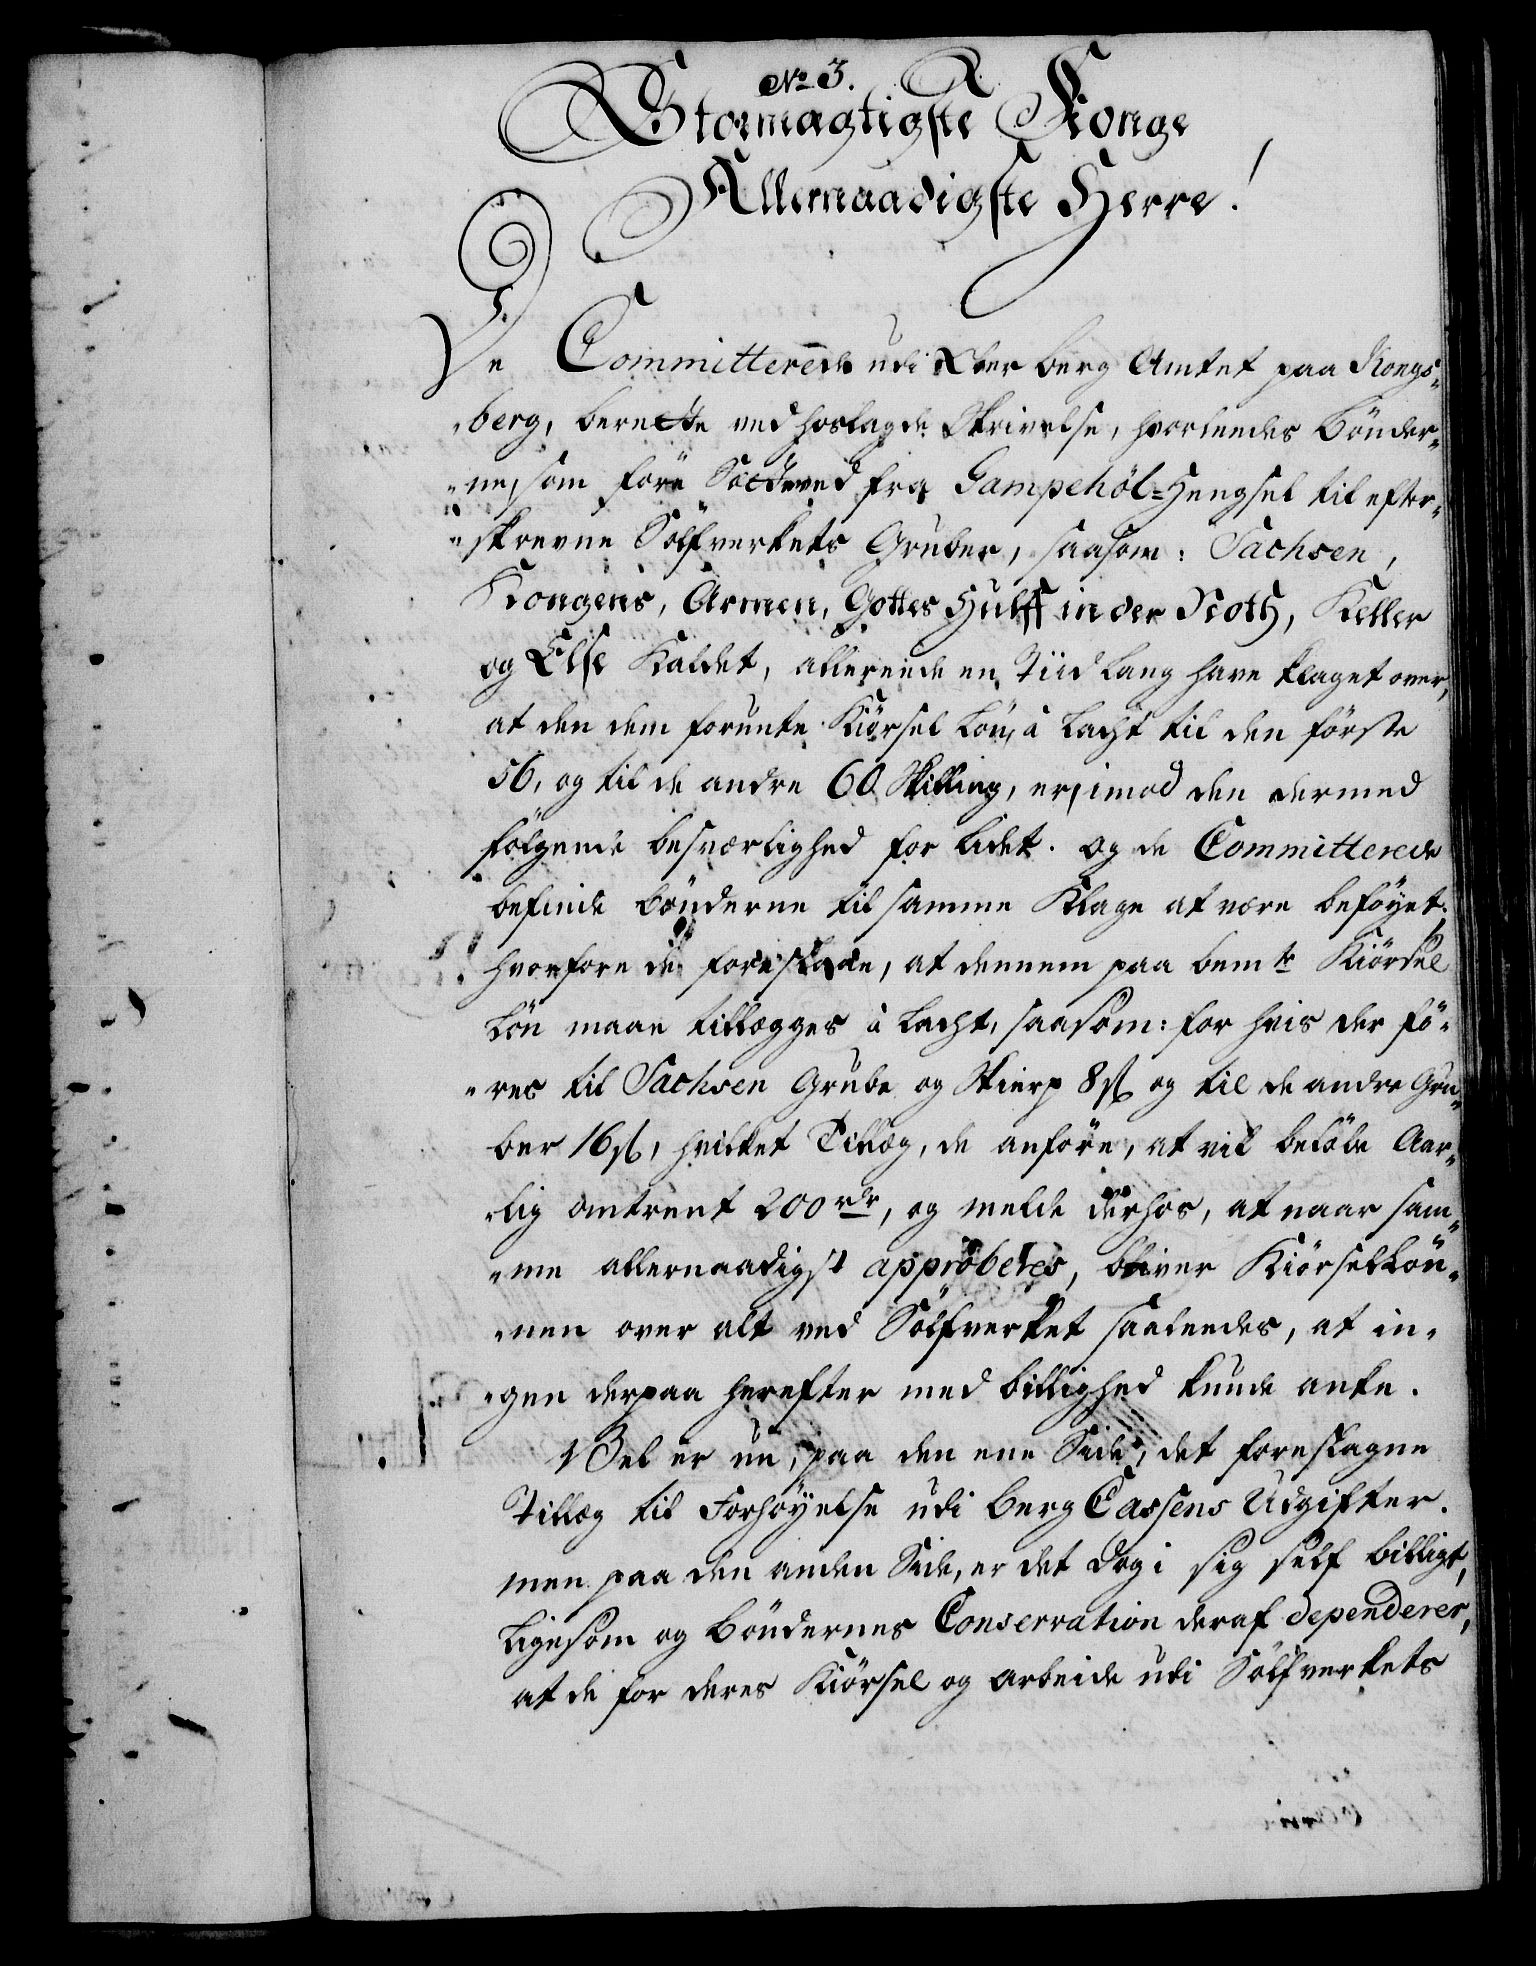 No 3.
Stormægtigste Konge
Allernaadigste Herre!
De Committerede udi Ober berg Amtet paa Kongs-
berg, berette ved hoslagde Skrivelse, hvorleedes Bönder-
ne, som före Sætteved fra Gampehöl-Hengsel til efter-
skrevne Sölfverkets Gruber, saasom: Sachsen,
Kongens, Armen, Gottes Hülff in der Noth, Keller
og Else kaldet, allereede en Tiid lang have klaget over,
at den dem forunte Kiörsel Lön, à Lacht til den förste
56, og til de andre 60 Skilling, er, imod den dermed
fölgende besværlighed for lidet. og de Committerede
befinde bönderne til samme Klage at være beföyet.
hvorfore de foreslaae, at dennem paa bemte Kiörsel
Lön maae tillægges à Lacht, saasom: for hvis der fö-
res til Sachsen Grube og Skierp 8 ß og til de andre Gru-
ber 16 ß, hvilket Tillæg, de anföre, at vil belöbe Aar-
lig omtrent 200 rdr, og melde derhos, at naar sam-
me allernaadigst approberes, bliver Kiörsellön-
nen over alt ved Sölfverket saaledes, at in-
gen derpaa herefter med billighed kunde anke.
Vel er nu, paa den ene Side, det foreslagne
Tillæg til Forhöyelse udi berg Cassens Udgifter.
men paa den anden Side, er det dog i sig self billigt,
ligesom og Böndernes Conservation deraf dependerer,
at de for deres Kiörsel og arbeide udi Sölfverkets